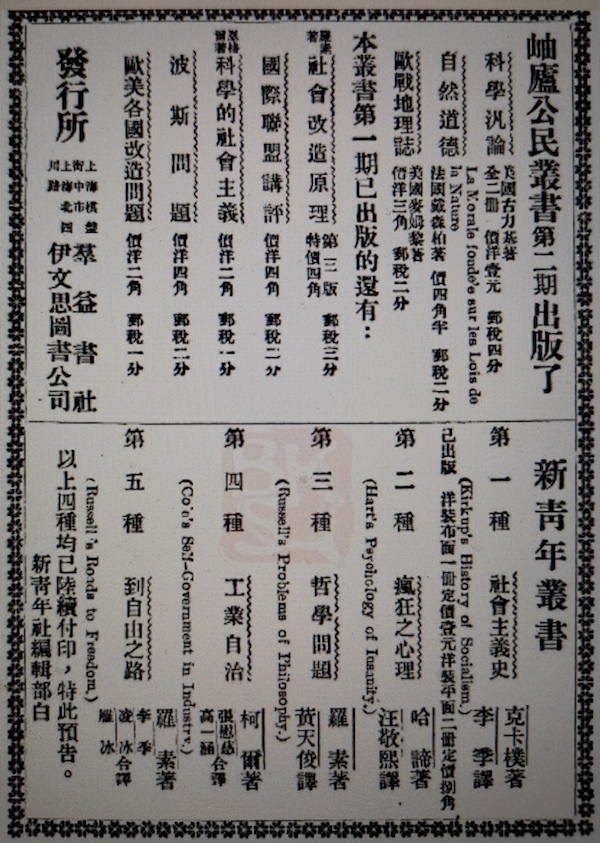 岫廬公民叢書第二期出版了
科學汎論
美國古力基著
全二冊 價洋壹元 郵稅四分
自然道德
La Morale fondée sur les Lois de
la Nature
法國戴森柏著 價四角半 郵稅二分
歐戰地理誌
美國麥姆黎著
價洋三角 郵稅二分
本叢書第一期已出版的還有：
羅素著
社會改造原理
第二版 郵稅三分
特價四角
國際聯盟講評 價洋四角 郵稅二分
恩格爾著
科學的社會主義 價洋二角 郵稅一分
波斯問題 價洋四角 郵稅二分
歐美各國改造問題 價洋二角 郵稅一分
發行所
上海棋盤街中市
羣益書社
上海北四川路
伊文思圖書公司
新青年叢書
第一種 社會主義史
克卡樸著
李季譯
(Kirkup's History of Socialism.)
已出版 洋裝布面一冊定價壹元洋裝平面二冊定價捌角
第二種 瘋狂之心理
哈諦著
汪敬熙譯
(Hart's Psychology of Insanity.)
第三種 哲學問題
羅素著
黃天俊譯
(Russell's Problems of Philosophy.)
第四種 工業自治
柯爾著
張慰慈
高一涵
合譯
(Co'e's Self-Government in Industry.)
第五種 到自由之路
羅素著
李季
凌冰
雁冰
合譯
(Russell's Roads to Freedom.)
以上四種均已陸續付印，特此預告。
新青年社編輯部白